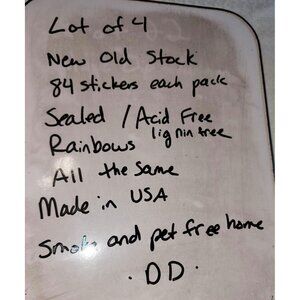 Lot of 4
New Old Stock
84 stickers each pack
Sealed / Acid Free
lignin free
Rainbows
All the Same
Made in USA
Smoke and pet free home
. DD .